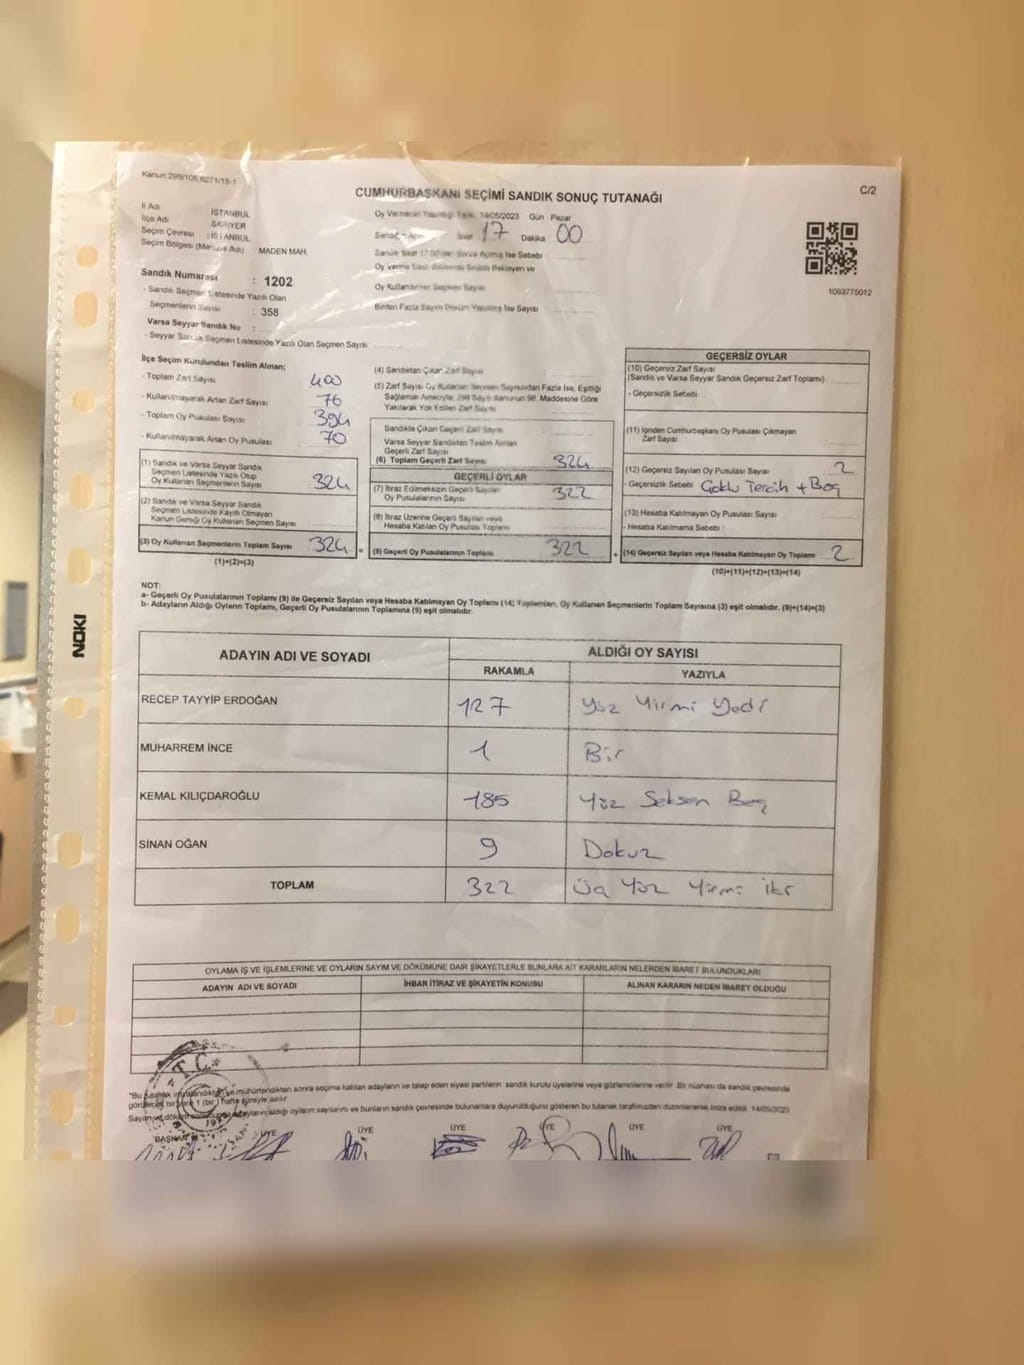 Kanun 298/105,6271/18-1
CUMHURBAŞKANI SEÇİMİ SANDIK SONUÇ TUTANAĞI
C/2
İl Adı İSTANBUL
İlçe Adı SARIYER
Seçim Çevresi : İSTANBUL
Seçim Bölgesi MADEN MAH.
Oy 14/05/2023 Gün Pazar
Saat 17 Dakika 00
Sandık Saat 17:00'den Sonra Açılmış İse Sebebi
Oy Verme
Oy Kullandırılan Seçmen Sayısı
Birden Fazla Sayım Döküm Yapılmış İse Sayısı
1093775012
Sandık Numarası : 1202
- Sandık Seçmen Listesinde Yazılı Olan
Seçmenlerin Sayısı : 358
Varsa Seyyar Sandık No :
- Seyyar Sandık Seçmen Listesinde Yazılı Olan Seçmen Sayısı
İlçe Seçim Kurulundan Teslim Alınan;
- Toplam Zarf Sayısı 400
- Kullanılmayarak Artan Zarf Sayısı 76
- Toplam Oy Pusulası Sayısı 394
- Kullanılmayarak Artan Oy Pusulası 70
(1) Sandık ve Varsa Seyyar Sandık
Seçmen Listesinde Yazılı Olup
Oy Kullanan Seçmenlerin Sayısı 324
(2) Sandık ve Varsa Seyyar Sandık
Seçmen Listesinde Kayıtlı Olmayan
Kanun Gereği Oy Kullanan Seçmen Sayısı
(3) Oy Kullanan Seçmenlerin Toplam Sayısı 324
(1)+(2)=(3)
(4) Sandıktan Çıkan Zarf Sayısı
(5) Zarf Sayısı Oy Kullanan Seçmen Sayısından Fazla İse, Eşitliği
Sağlamak Amacıyla, 298 Sayılı Kanunun 98. Maddesine Göre
Yakılarak Yok Edilen Zarf Sayısı
Sandıkta Çıkan Geçerli Zarf Sayısı
Varsa Seyyar Sandıktan Teslim Alınan
Geçerli Zarf Sayısı
(6) Toplam Geçerli Zarf Sayısı 324
GEÇERLİ OYLAR
(7) İtiraz Edilmeksizin Geçerli Sayılan
Oy Pusulalarının Sayısı 322
(8) İtiraz Üzerine Geçerli Sayılan veya
Hesaba Katılan Oy Pusulası Toplamı
(9) Geçerli Oy Pusulalarının Toplamı 322
GEÇERSİZ OYLAR
(10) Geçersiz Zarf Sayısı
(Sandık ve Varsa Seyyar Sandık Geçersiz Zarf Toplamı)
- Geçersizlik Sebebi
(11) İçinden Cumhurbaşkanı Oy Pusulası Çıkmayan
Zarf Sayısı
(12) Geçersiz Sayılan Oy Pusulası Sayısı 2
- Geçersizlik Sebebi Çoklu Tercih + Boş
(13) Hesaba Katılmayan Oy Pusulası Sayısı
- Hesaba Katılmama Sebebi :
(14) Geçersiz Sayılan veya Hesaba Katılmayan Oy Toplamı 2
(10)+(11)+(12)+(13)=(14)
NOT:
a- Geçerli Oy Pusulalarının Toplamı (9) ile Geçersiz Sayılan veya Hesaba Katılmayan Oy Toplamı (14) Toplamları, Oy Kullanan Seçmenlerin Toplam Sayısına (3) eşit olmalıdır. (9)+(14)=(3)
b- Adayların Aldığı Oyların Toplamı, Geçerli Oy Pusulalarının Toplamına (9) eşit olmalıdır.
NOKI
ADAYIN ADI VE SOYADI
ALDIĞI OY SAYISI
RAKAMLA YAZIYLA
RECEP TAYYİP ERDOĞAN 127 Yüz Yirmi Yedi
MUHARREM İNCE 1 Bir
KEMAL KILIÇDAROĞLU 185 Yüz Seksen Beş
SİNAN OĞAN 9 Dokuz
TOPLAM 322 Üç Yüz Yirmi İki
OYLAMA İŞ VE İŞLEMLERİNE VE OYLARIN SAYIM VE DÖKÜMÜNE DAİR ŞİKAYETLERLE BUNLARA AİT KARARLARIN NELERDEN İBARET BULUNDUKLARI
ADAYIN ADI VE SOYADI İHBAR İTİRAZ VE ŞİKAYETİN KONUSU ALINAN KARARIN NEDEN İBARET OLDUĞU
T.C.
"Bu tutanak imzalandıktan ve mühürlendikten sonra seçime katılan adayların ve talep eden siyasi partilerin sandık kurulu üyelerine veya gözlemcilerine verilir. Bir nüshası da sandık çevresinde
görülecek bir yere 1 (bir) hafta süreyle asılır.
Sayım ve döküm adayların aldığı oyların sayılarını ve bunların sandık çevresinde bulunanlara duyurulduğunu gösteren bu tutanak tarafımızdan düzenlenerek imza edildi. 14/05/2023
BAŞKAN ÜYE ÜYE ÜYE ÜYE ÜYE ÜYE